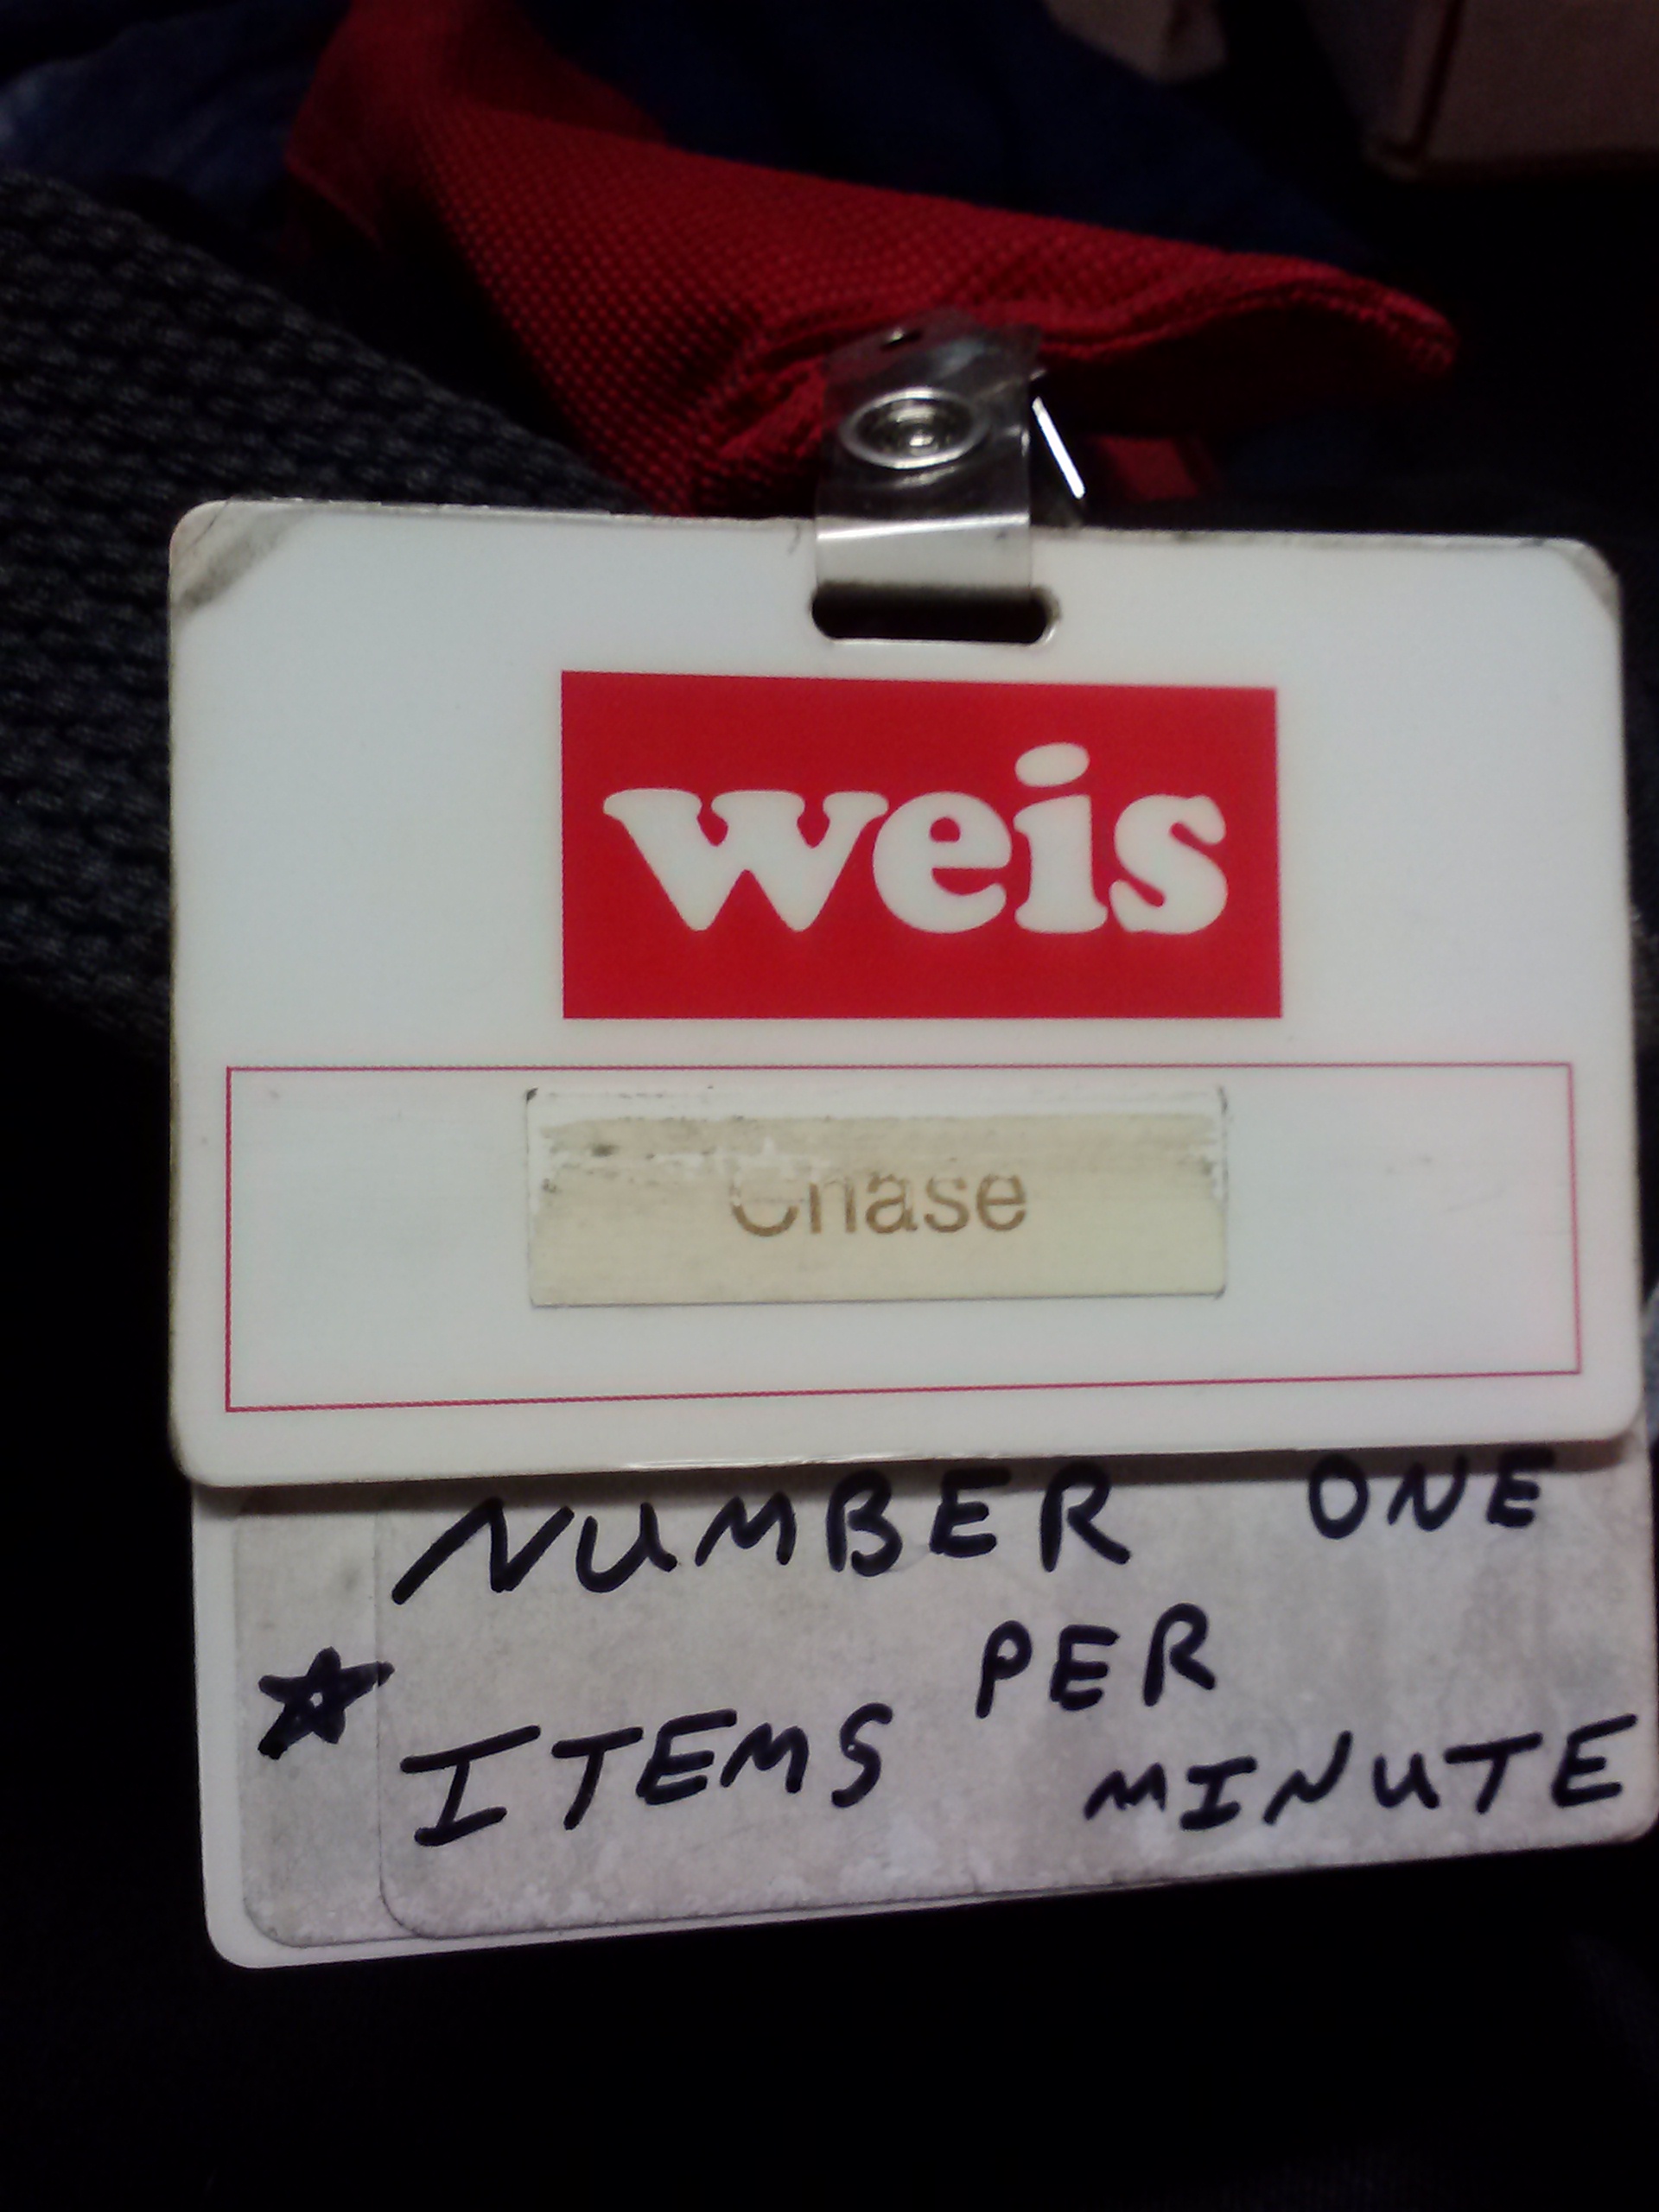 weis
Chase
NUMBER ONE
ITEMS PER
MINUTE